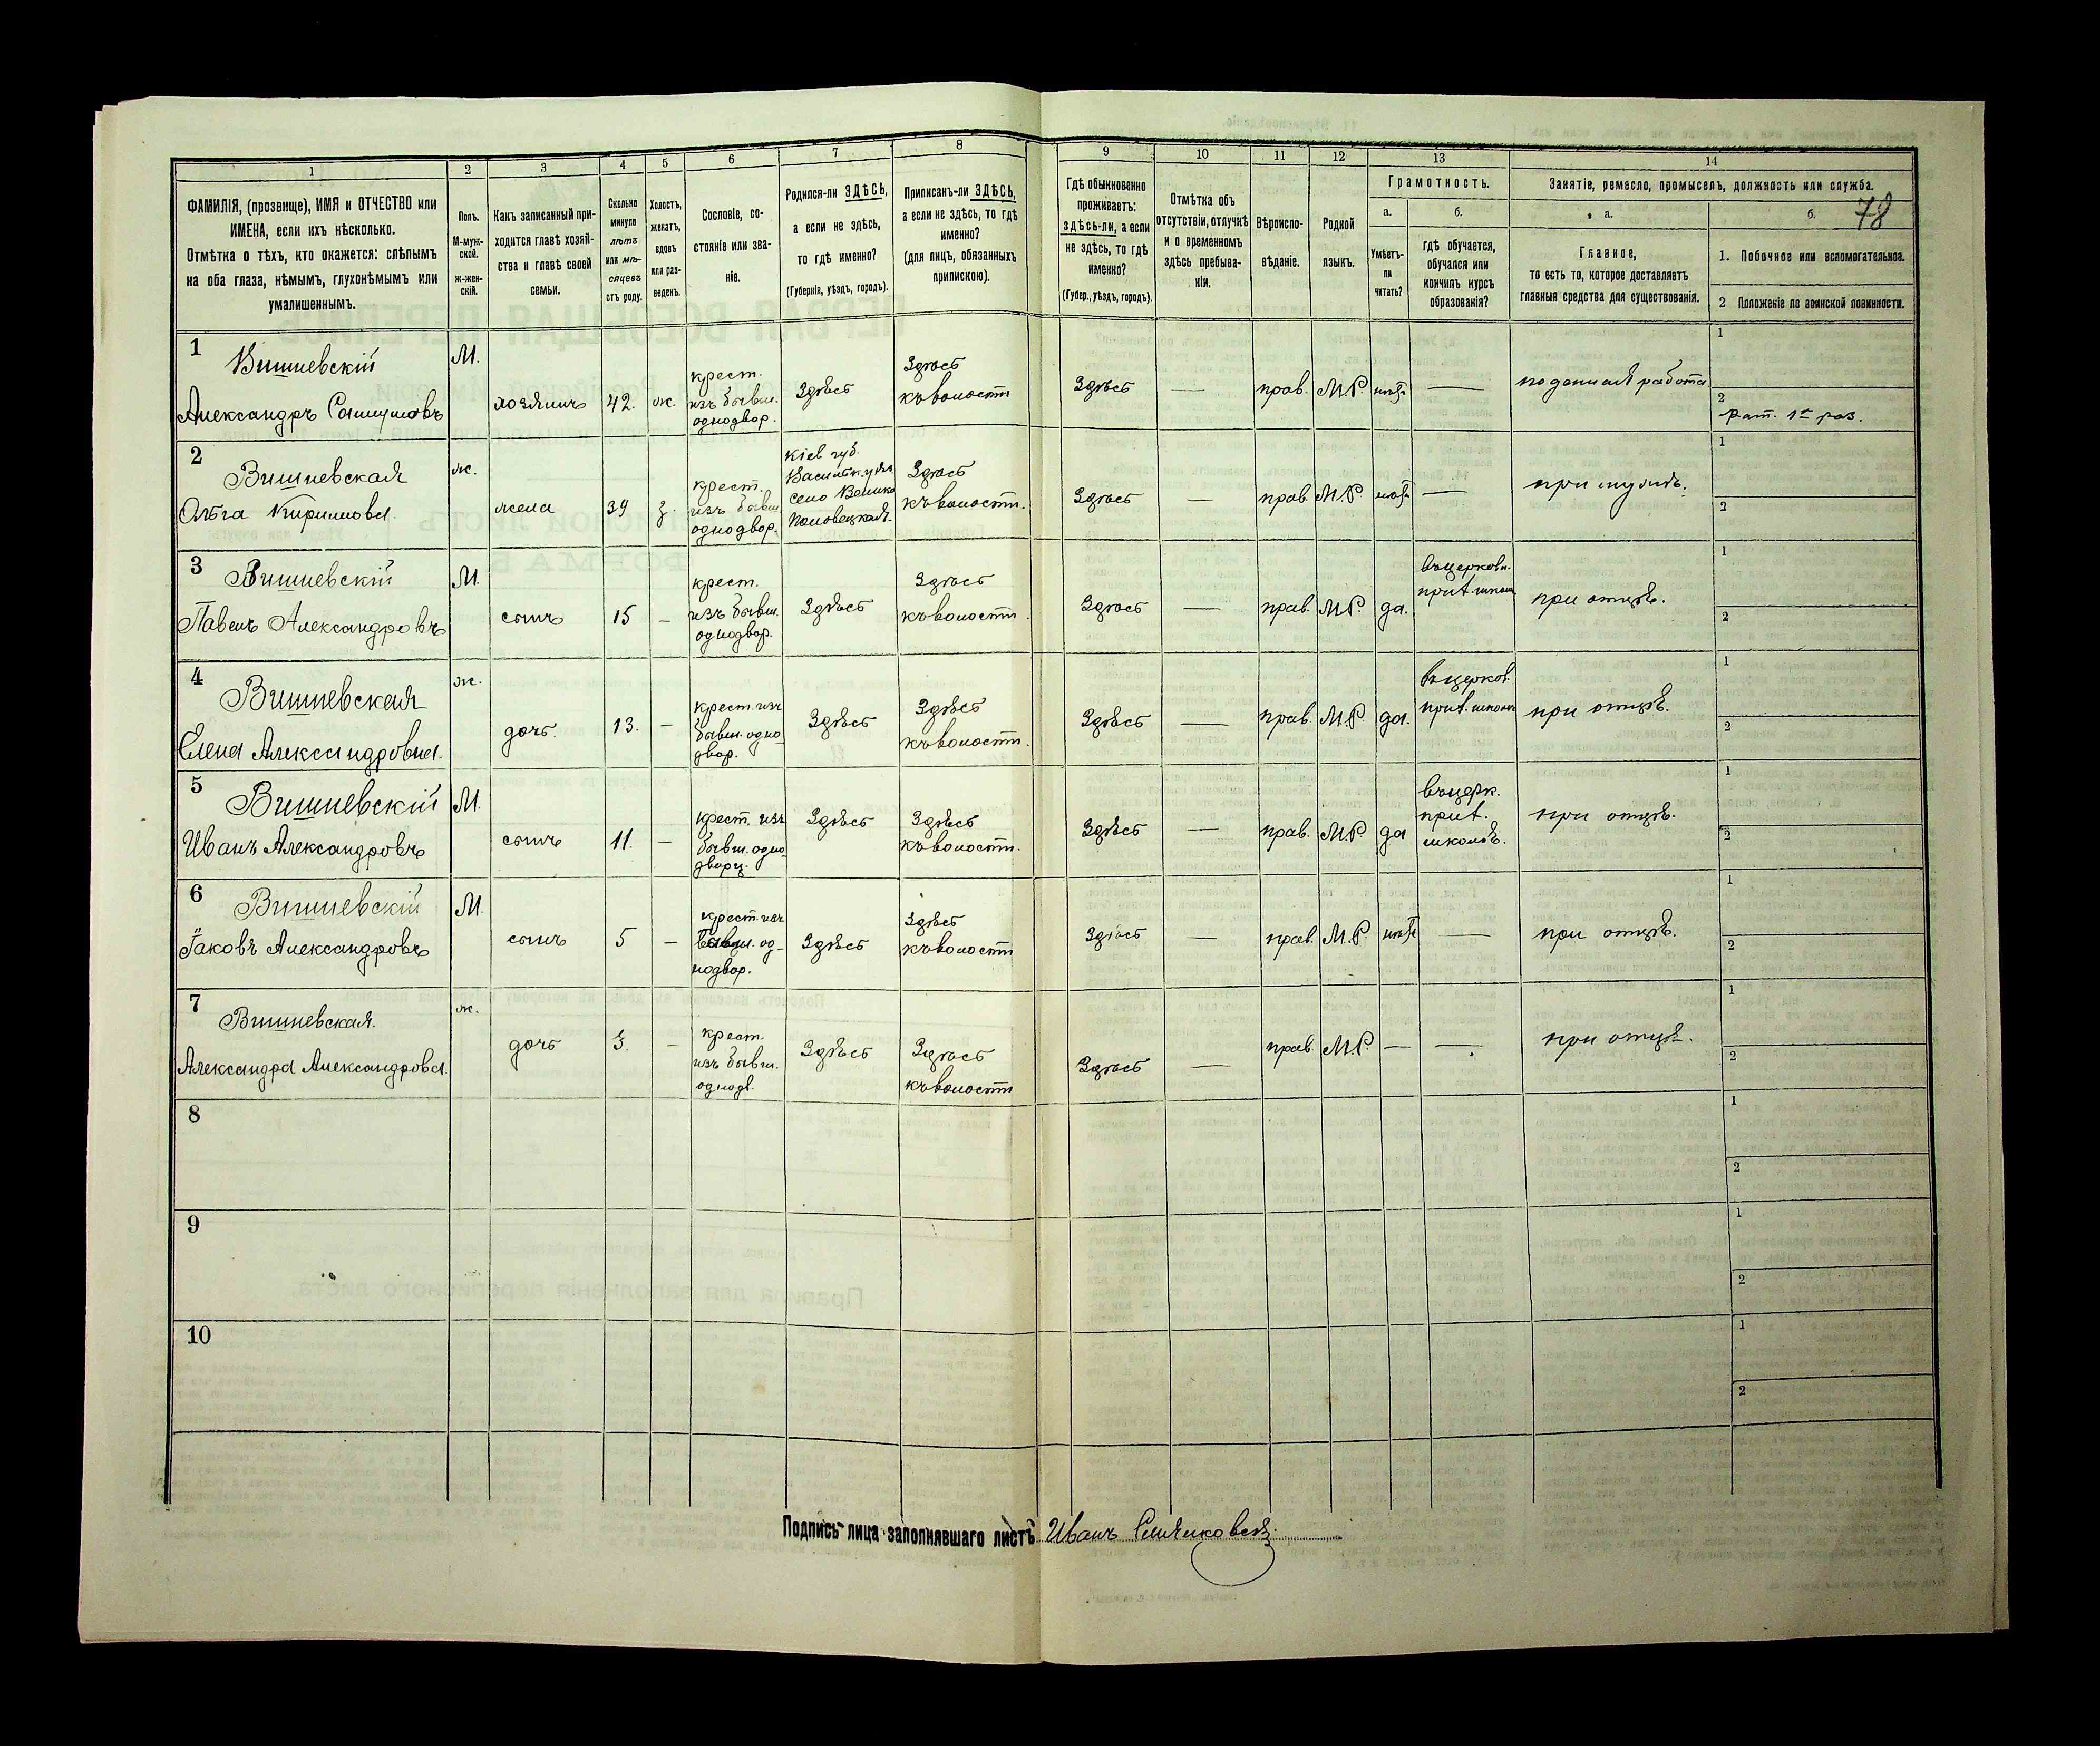 1 2 3 4 5 6 7 8 9 10 11 12 13 14
78
ФАМИЛІЯ, (прозвище), ИМЯ и ОТЧЕСТВО или
ИМЕНА, если ихъ нѣсколько.
Отмѣтка о тѣхъ, кто окажется: слѣпымъ
на оба глаза, нѣмымъ, глухонѣмымъ или
умалишеннымъ.
Полъ.
М-муж-
ской.
Ж-жен-
скій.
Какъ записанный при-
ходится главѣ хозяй-
ства и главѣ своей
семьи.
Сколько
минуло
лѣтъ
или мѣ-
сяцевъ
отъ роду.
Холостъ,
женатъ,
вдовъ
или раз-
веденъ.
Сословіе, со-
стояніе или зва-
ніе.
Родился-ли ЗДѢСЬ,
а если не здѣсь,
то гдѣ именно?
(Губернія, уѣздъ, городъ).
Приписанъ-ли ЗДѢСЬ,
а если не здѣсь, то гдѣ
именно?
(для лицъ, обязанныхъ
припискою).
Гдѣ обыкновенно
проживаетъ:
здѣсь-ли, а если
не здѣсь, то гдѣ
именно?
(Губер., уѣздъ, городъ).
Отмѣтка объ
отсутствіи, отлучкѣ
и о временномъ
здѣсь пребыва-
ніи.
Вѣроиспо-
вѣданіе.
Родной
языкъ.
Грамотность.
а.
Умѣетъ-
ли
читать?
б.
Гдѣ обучается,
обучался или
кончилъ курсъ
образованія?
Занятіе, ремесло, промыселъ, должность или служба.
а.
Главное,
то есть то, которое доставляетъ
главныя средства для существованія.
б.
1. Побочное или вспомогательное.
2 Положеніе по воинской повинности.
1
Вишневскій
Александръ
М.
хозяинъ
42.
ж.
крест.
изъ бывш.
однодвор.
Здѣсь
Здѣсь
къ волости
Здѣсь
—
прав.
М.Р.
нѣтъ
—
поденная работа
1
2
рат. 1го раз.
2
Вишневская
Ольга Кирилова.
ж.
жена
39
з.
крест.
изъ бывш.
однодвор.
Кіев губ.
Васильк. у.
село Велико
Половецкая.
Здѣсь
къ волости.
Здѣсь
—
прав.
М.Р.
нѣтъ
—
при мужѣ.
1
2
3
Вишневскій
Павелъ Александровъ
М.
сынъ
15
—
крест.
изъ бывш.
однодвор.
Здѣсь
Здѣсь
къ волости.
Здѣсь
—
прав.
М.Р.
да.
въ церковн.
прих. школ
при отцѣ.
1
2
4
Вишневская
Елена Александровна.
ж.
дочь.
13.
—
крест. изъ
бывш. одно
двор.
Здѣсь
Здѣсь
къ волости.
Здѣсь
—
прав.
М.Р
да.
въ церков.
прих. школѣ
при отцѣ.
1
2
5
Вишневскій
Иванъ Александровъ
М.
сынъ
11.
—
крест. изъ
бывш. одно
дворц.
Здѣсь
Здѣсь
къ волости.
Здѣсь
—
прав.
М.Р
да
въ церк.
прих.
школѣ.
при отцѣ.
1
2
6
Вишневскій
Яковъ Александровъ
М.
сынъ
5
—
крест. изъ
бывш. од-
нодвор.
Здѣсь
Здѣсь
къ волости
Здѣсь
—
прав.
М.Р.
нѣтъ
—
при отцѣ.
1
2
7
Вишневская.
Александра Александрова.
ж.
дочь
3.
—
крест.
изъ бывш.
однодв.
Здѣсь
Здѣсь
къ волости
Здѣсь
—
прав.
М.Р.
—
—
при отцѣ.
1
2
8
1
2
9
1
2
10
1
2
Подпись лица заполнявшаго листъ Иванъ